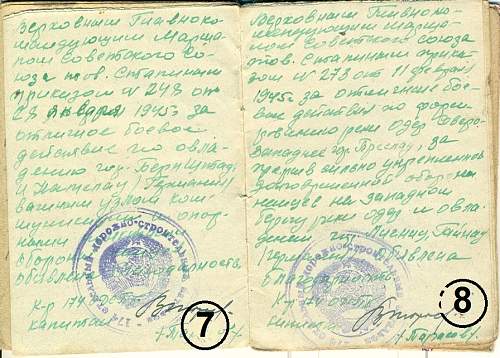 Верховным Главноко-
мандующим Марша-
лом Советского Со-
юза тов. Сталиным
приказом N 248 от
28 января 1945г за
отличное боевое
действие по овла-
дению гор.
и Намслау (Германия)
важными узлом ком-
муникаций и опор-
ными
обороны
объявлена благодарность
К-р 174
капитан
/Тарасов/
7
Верховным Главноко-
мандующим Марша-
лом Советского Союза
тов. Сталиным прика-
зом N 273 от 11 февраля
1945г за отличные бое-
вые действия по форси-
рованию реки Одер северо-
западнее гор. Бреслау, за
прорыв сильно укрепленной
долговременной обороны
немцев на западном
берегу реки Одер и овла-
дении гор. Лигниц,
объявлена
благодарность
К-р 174
капитан
/Тарасов/
8
дорожно-строительный
174
дорожно-строительный